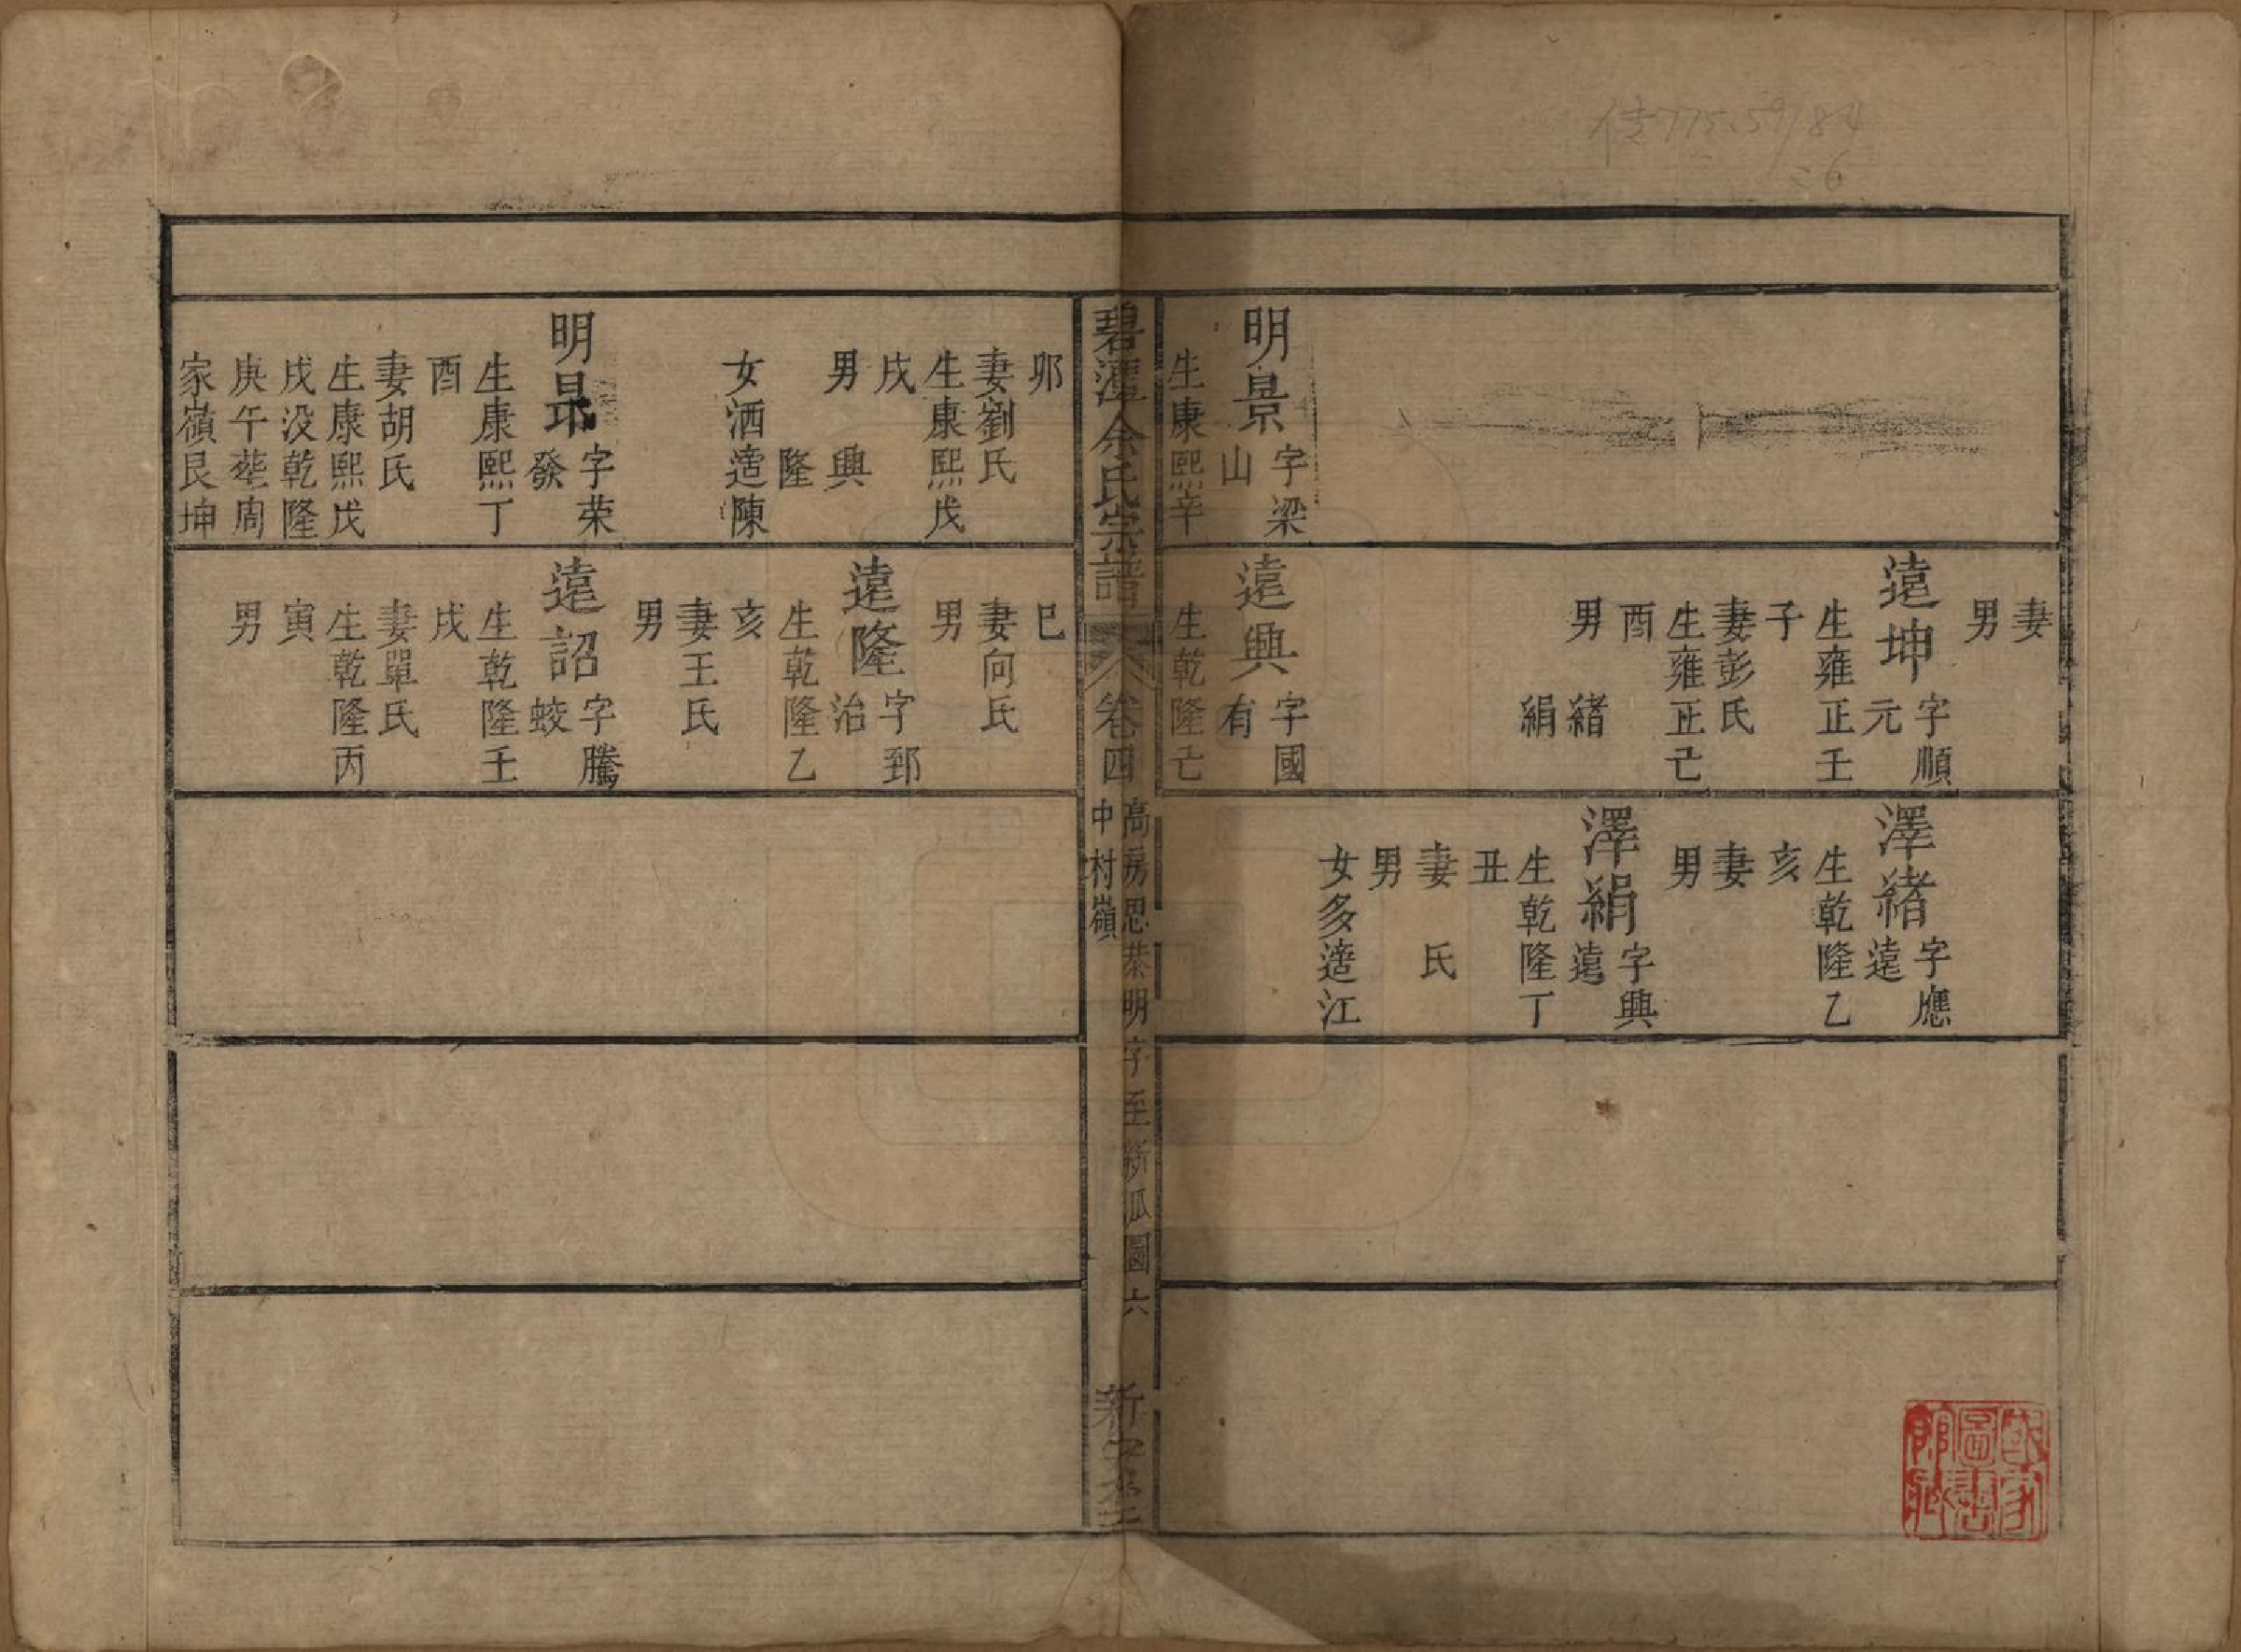 明景
字梁
山
生康熙辛
妻
男
遠坤
字順
元
生雍正壬
子
妻彭氏
生雍正己
酉
男
緒
絹
遠興
字國
有
生乾隆己
澤緒
字應
遠
生乾隆乙
亥
妻
男
澤絹
字興
遠
生乾隆丁
丑
妻 氏
男
女多適江
碧潭余氏宗譜
卷四
高房思恭明字至新派圖六
中村嶺
新安
卯
妻劉氏
生康熙戊
戌
男
興
隆
女洒適陳
明
字荣
發
生康熙丁
酉
妻胡氏
生康熙戊
戌没乾隆
庚午葬周
家嶺艮坤
巳
妻向氏
男
遠隆
字郅
治
生乾隆乙
亥
妻王氏
男
遠詔
字騰
蛟
生乾隆壬
戌
妻單氏
生乾隆丙
寅
男
国家
图书
馆藏